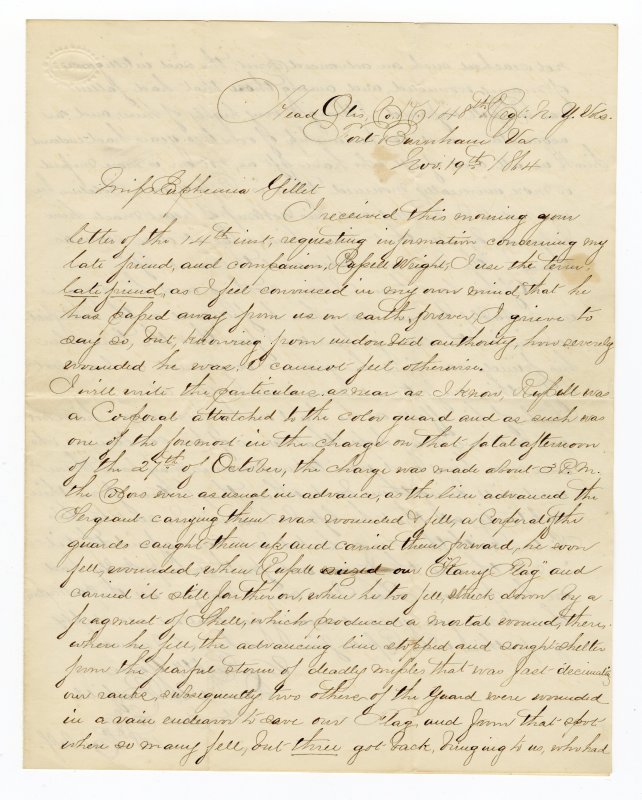 Head Qtrs, Co. 148th Regt. N. Y. Vols.
Fort Burnham Va
Nov. 19th 1864
Miss Euphemia Gillet
I received this morning your
letter of the 14th inst, requesting information concerning my
late friend, and companion, Russell Wright, I use the term,
late friend, as I feel convinced in my own mind, that he
has passed away from us on earth, forever, I grieve to
say so, but, knowing from undoubted authority, how severely
wounded he was, I cannot feel otherwise.
I will write the particulars, as near as I know, Russell was
a Corporal attatched to the color guard and as such was
one of the foremost in the charge on that fatal afternoon
of the 27th of October, the charge was made about 3 P.M.
the Colors were as usual in advance, as the line advanced the
Sergeant carrying them was wounded & fell, a Corporal of the
guards caught them up and carried them forward, he soon
fell, wounded, when Russell seized our "Starry Flag" and
carried it still farther on, when he too fell, struck down by a
fragment of Shell, which produced a mortal wound, there,
where he fell, the advancing line stopped and sought shelter
from the fearful storm of deadly missles that was fast decimating
our ranks, subsequently two others of the Guard were wounded
in a vain endeavor to save our Flag, and from that spot
where so many fell, but three got back, bringing to us, who had